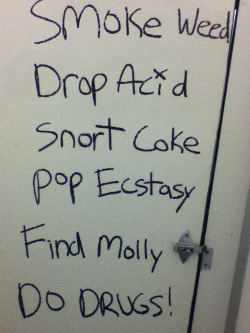 SMOKE Weed!
Drop Acid
Snort Coke
POP Ecstasy
Find Molly
DO DRUGS!